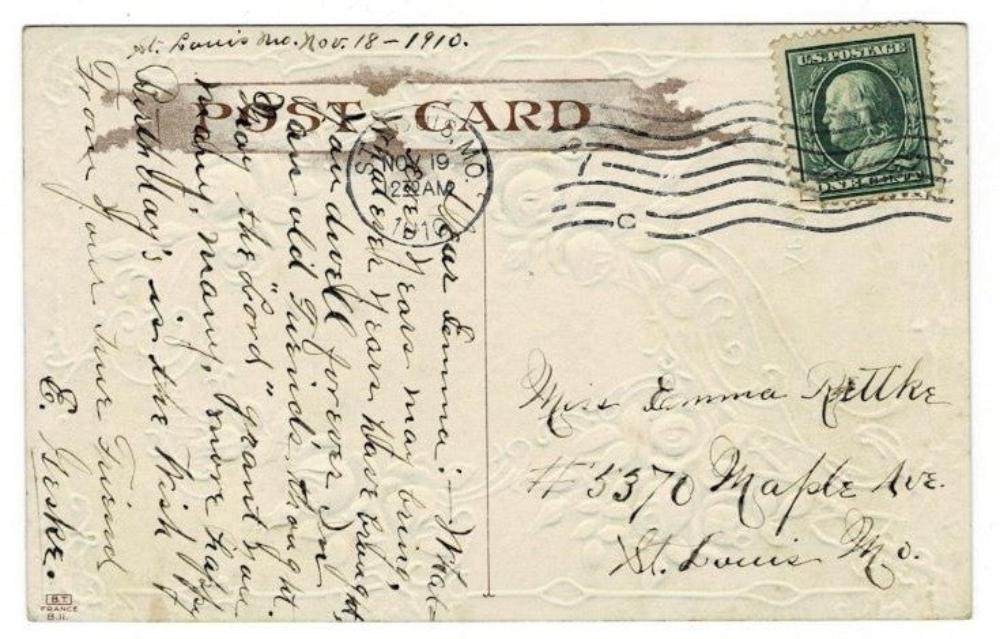 St. Louis Mo. Nov. 18 - 1910.
POST CARD
U.S. POSTAGE
ONE CENT
MO.
NOV 19
12 30 AM
1910
C
Dear Emma:- What-
ever years may bring,
Whatever years have brought,
You dwell forever in
an old Friend's thought.
May the "Lord" grant you
many, many, more happy
Birthday's is the Wish
From Your True Friend
E. Geske.
Miss Emma Rettke
# 5370 Maple Ave.
St. Louis Mo.
B.T.
FRANCE
B.11.